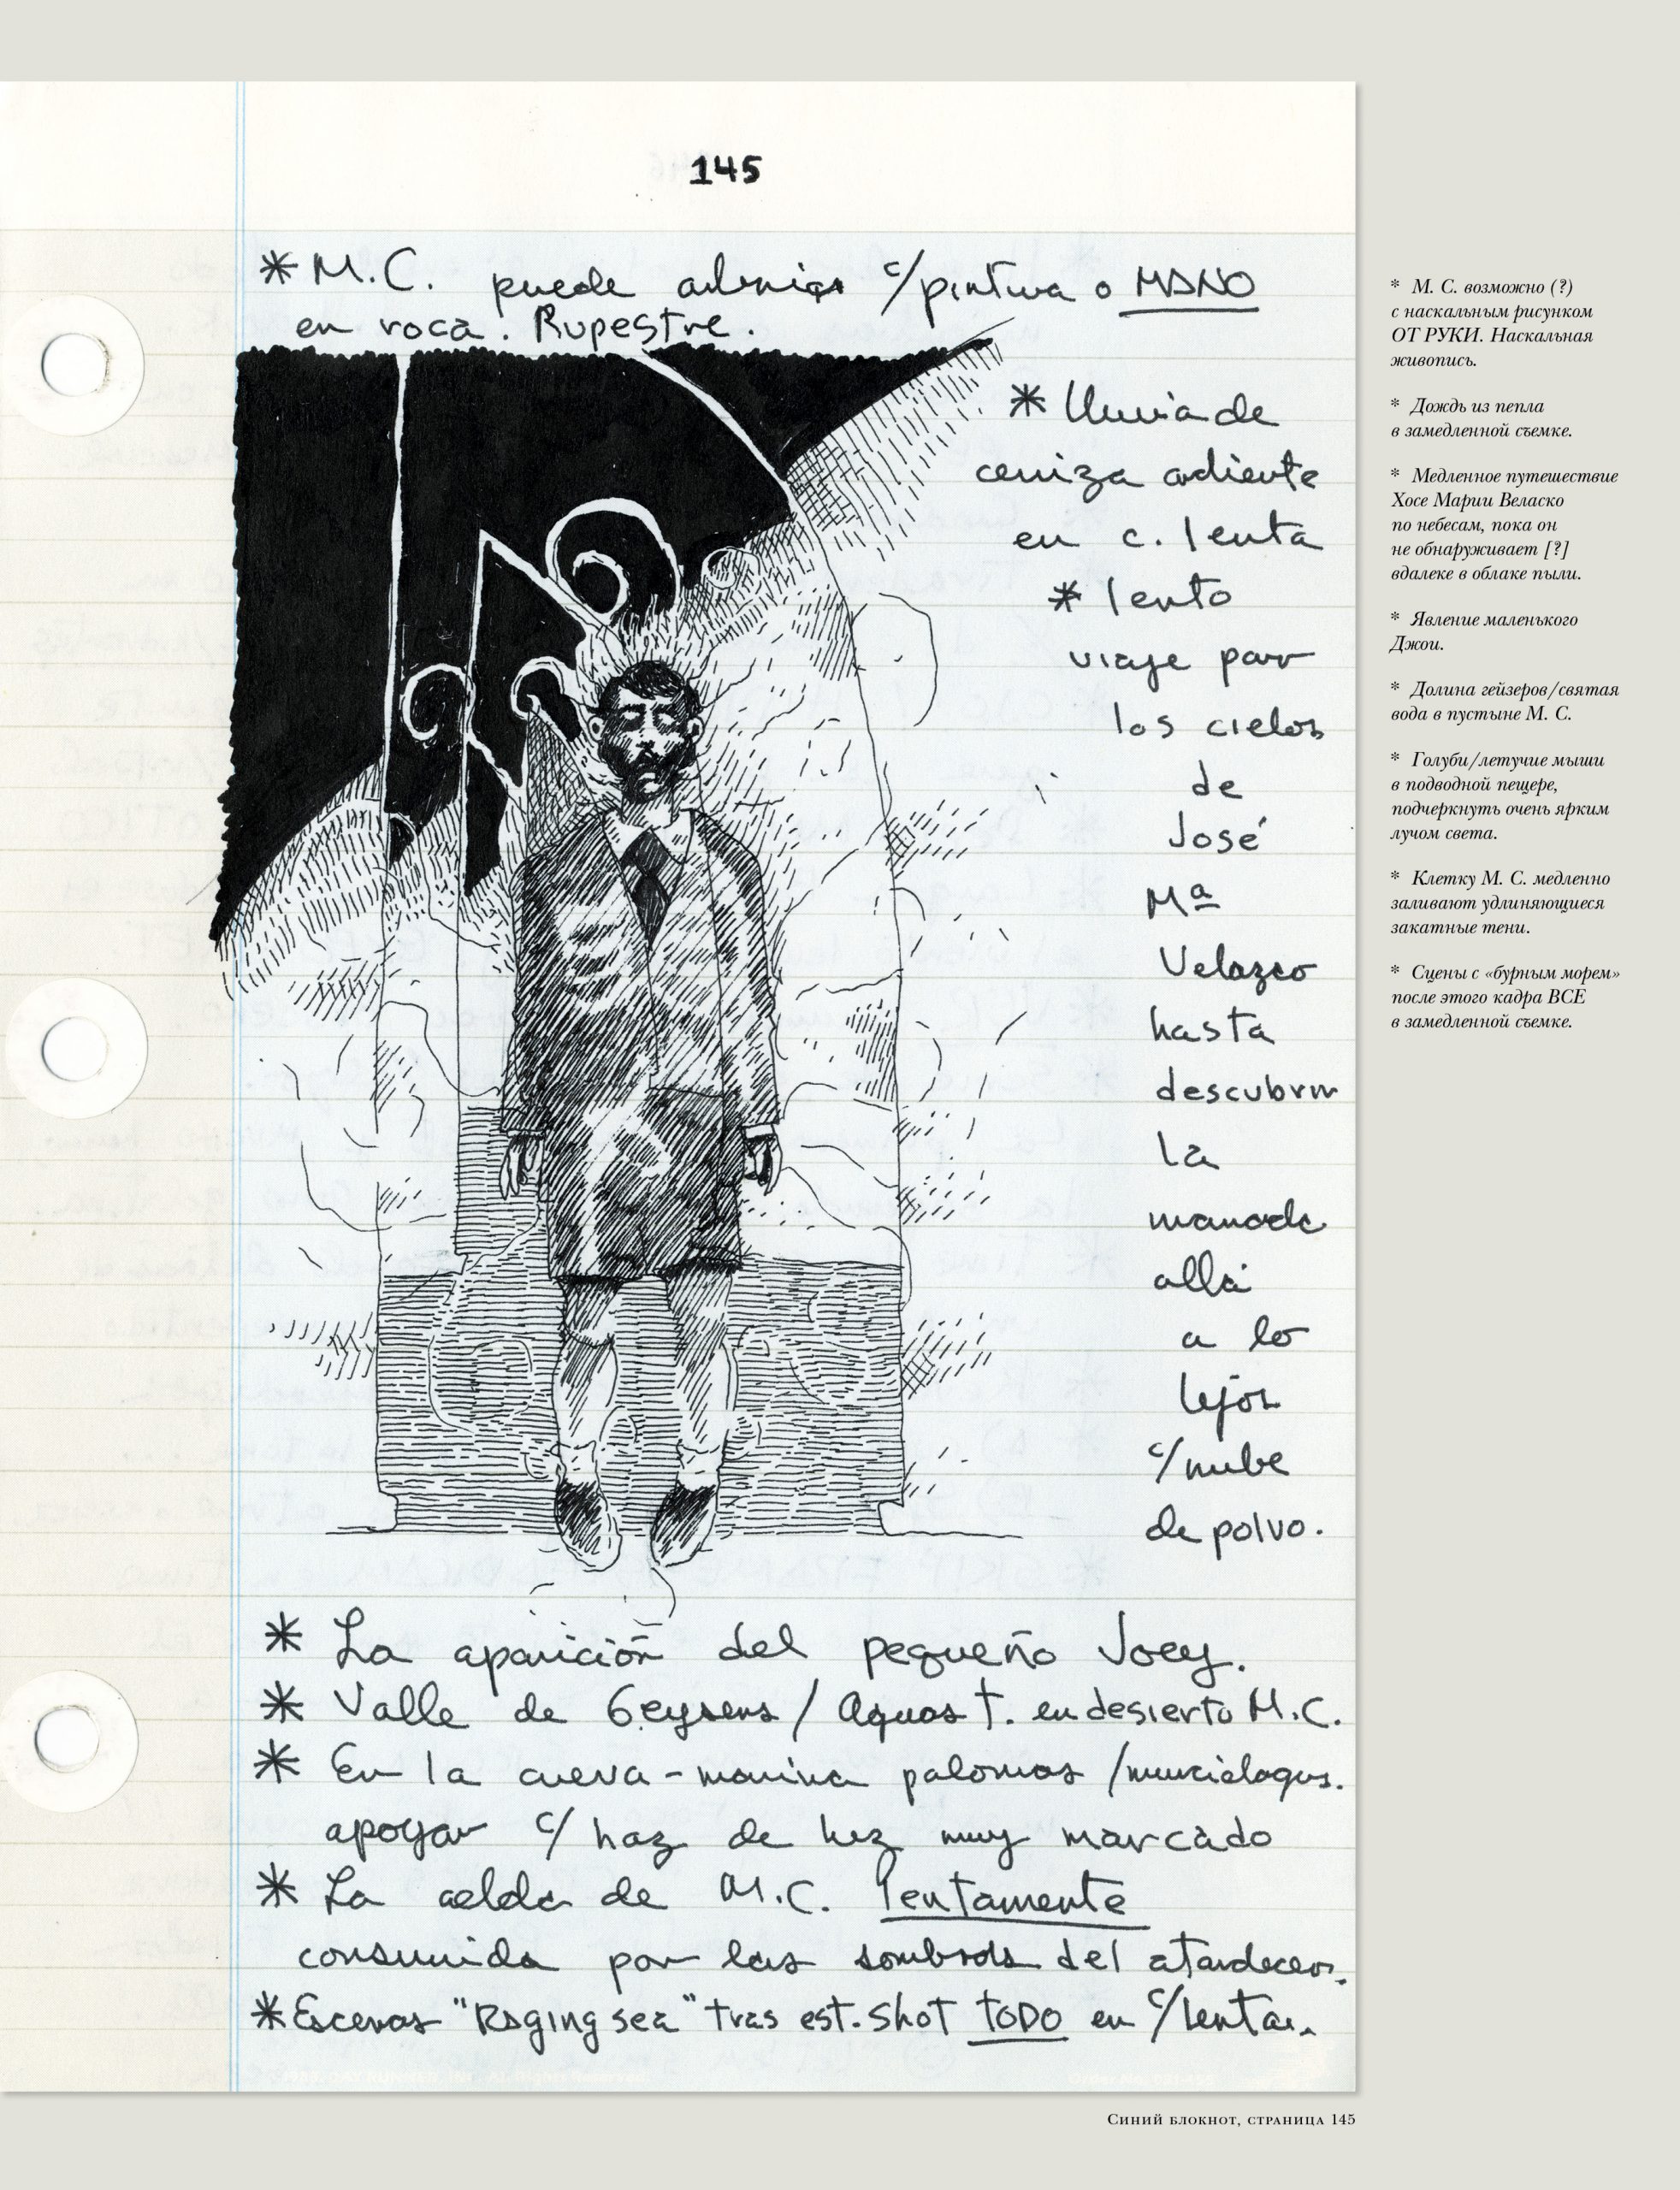 145
* M.C. puede c/pintura o MANO
en roca. Rupestre.
* lluvia de
ceniza ardiente
en c. lenta
* lento
viaje por
los cielos
de
José
Mª
Velazco
hasta
descubrir
la
allá
a lo
lejos
c/nube
de polvo.
* La aparición del pequeño Joey.
* Valle de Geysers / Aguas T. en desierto M.C.
* En la cueva-marina palomas / murciélagos.
apoyar c/ haz de luz muy marcado
* La celda de M.C. lentamente
consumida por las sombras del atardecer.
* Escenas "Raging sea" tras est. shot TODO en c/lenta.
* М. С. возможно (?)
с наскальным рисунком
ОТ РУКИ. Наскальная
живопись.
* Дождь из пепла
в замедленной съемке.
* Медленное путешествие
Хосе Марии Веласко
по небесам, пока он
не обнаруживает [?]
вдалеке в облаке пыли.
* Явление маленького
Джои.
* Долина гейзеров/святая
вода в пустыне М. С.
* Голуби/летучие мыши
в подводной пещере,
подчеркнуть очень ярким
лучом света.
* Клетку М. С. медленно
заливают удлиняющиеся
закатные тени.
* Сцены с «бурным морем»
после этого кадра ВСЕ
в замедленной съемке.
Синий блокнот, страница 145